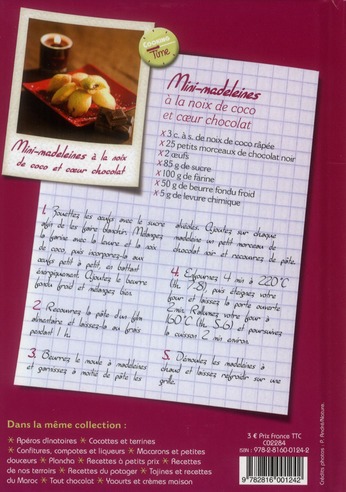 Cooking
Time
Mini-madeleines
à la noix de coco
et cœur chocolat
Mini-madeleines à la noix
de coco et cœur chocolat
x 3 c. à s. de noix de coco râpée
x 25 petits morceaux de chocolat noir
x 2 œufs
x 85 g de sucre
x 100 g de farine
x 50 g de beurre fondu froid
x 5 g de levure chimique
1. Fouettez les œufs avec le sucre
afin de les faire blanchir. Mélangez
la farine avec la levure et la noix
de coco puis incorporez-la aux
œufs petit à petit, en battant
énergiquement. Ajoutez le beurre
fondu froid et mélangez bien.
2. Recouvrez la pâte d'un film
alimentaire et laissez-la au frais
pendant 1 h.
3. Beurrez le moule à madeleines
et garnissez à moitié de pâte les
alvéoles. Ajoutez sur chaque
madeleine un petit morceau de
chocolat noir et recouvrez de pâte.
4. Enfournez 4 min à 220°C
(th. 7-8) puis éteignez votre
four et laissez la porte ouverte
2 min. Rallumez votre four à
160°C (th. 5-6) et poursuivez
la cuisson 2 min environ.
5. Démoulez les madeleines à
chaud et laissez refroidir sur une
grille.
Dans la même collection :
* Apéros dînatoires * Cocottes et terrines
* Confitures, compotes et liqueurs * Macarons et petites
douceurs * Plancha * Recettes à petits prix * Recettes
de nos terroirs * Recettes du potager * Tajines et recettes
du Maroc * Tout chocolat * Yaourts et crèmes maison
3 € Prix France TTC
C02284
ISBN : 978-2-8160-0124-2
9 782816 001242
Crédits photos : P. André/Nature.